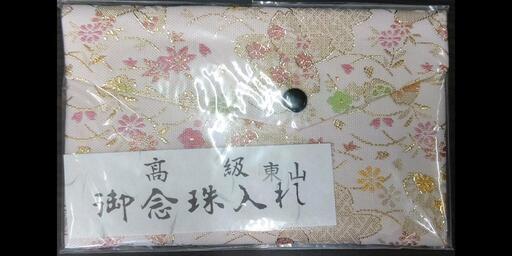 高級 東山
御念珠入れ